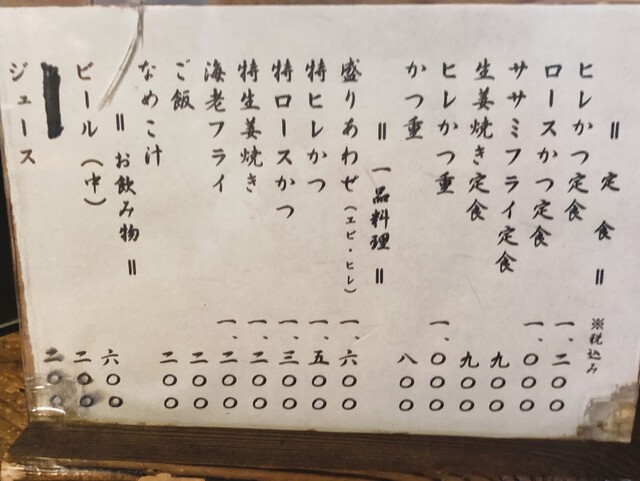 ＝定食＝
※税込み
ヒレかつ定食 一、二〇〇
ロースかつ定食 一、〇〇〇
ササミフライ定食 九〇〇
生姜焼き定食 九〇〇
ヒレかつ重 一、〇〇〇
かつ重 八〇〇
＝一品料理＝
盛りあわせ（エビ・ヒレ） 一、六〇〇
特ヒレかつ 一、五〇〇
特ロースかつ 一、三〇〇
特生姜焼き 一、二〇〇
海老フライ 一、二〇〇
ご飯 二〇〇
なめこ汁 二〇〇
＝お飲み物＝
ビール（中） 六〇〇
二〇〇
ジュース 二〇〇